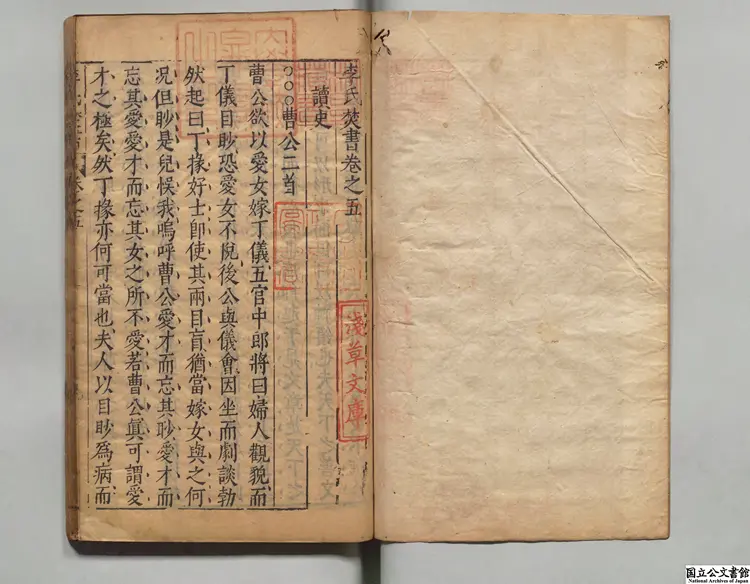 李氏焚書卷之五
讀史
○○○曹公二首
曹公欲以愛女嫁丁儀五官中郎將曰婦人觀貌而
丁儀目眇恐愛女不悅後公與儀會因坐而劇談勃
然起曰丁掾好士即使其兩目盲猶當嫁女與之何
況但眇是兒悞我嗚呼曹公愛才而忘其眇愛才而
忘其愛愛才而忘其女之所不愛若曹公眞可謂愛
才之極矣然丁掾亦何可當也夫人以目眇爲病而
淺草文庫
国立公文書館
National Archives of Japan